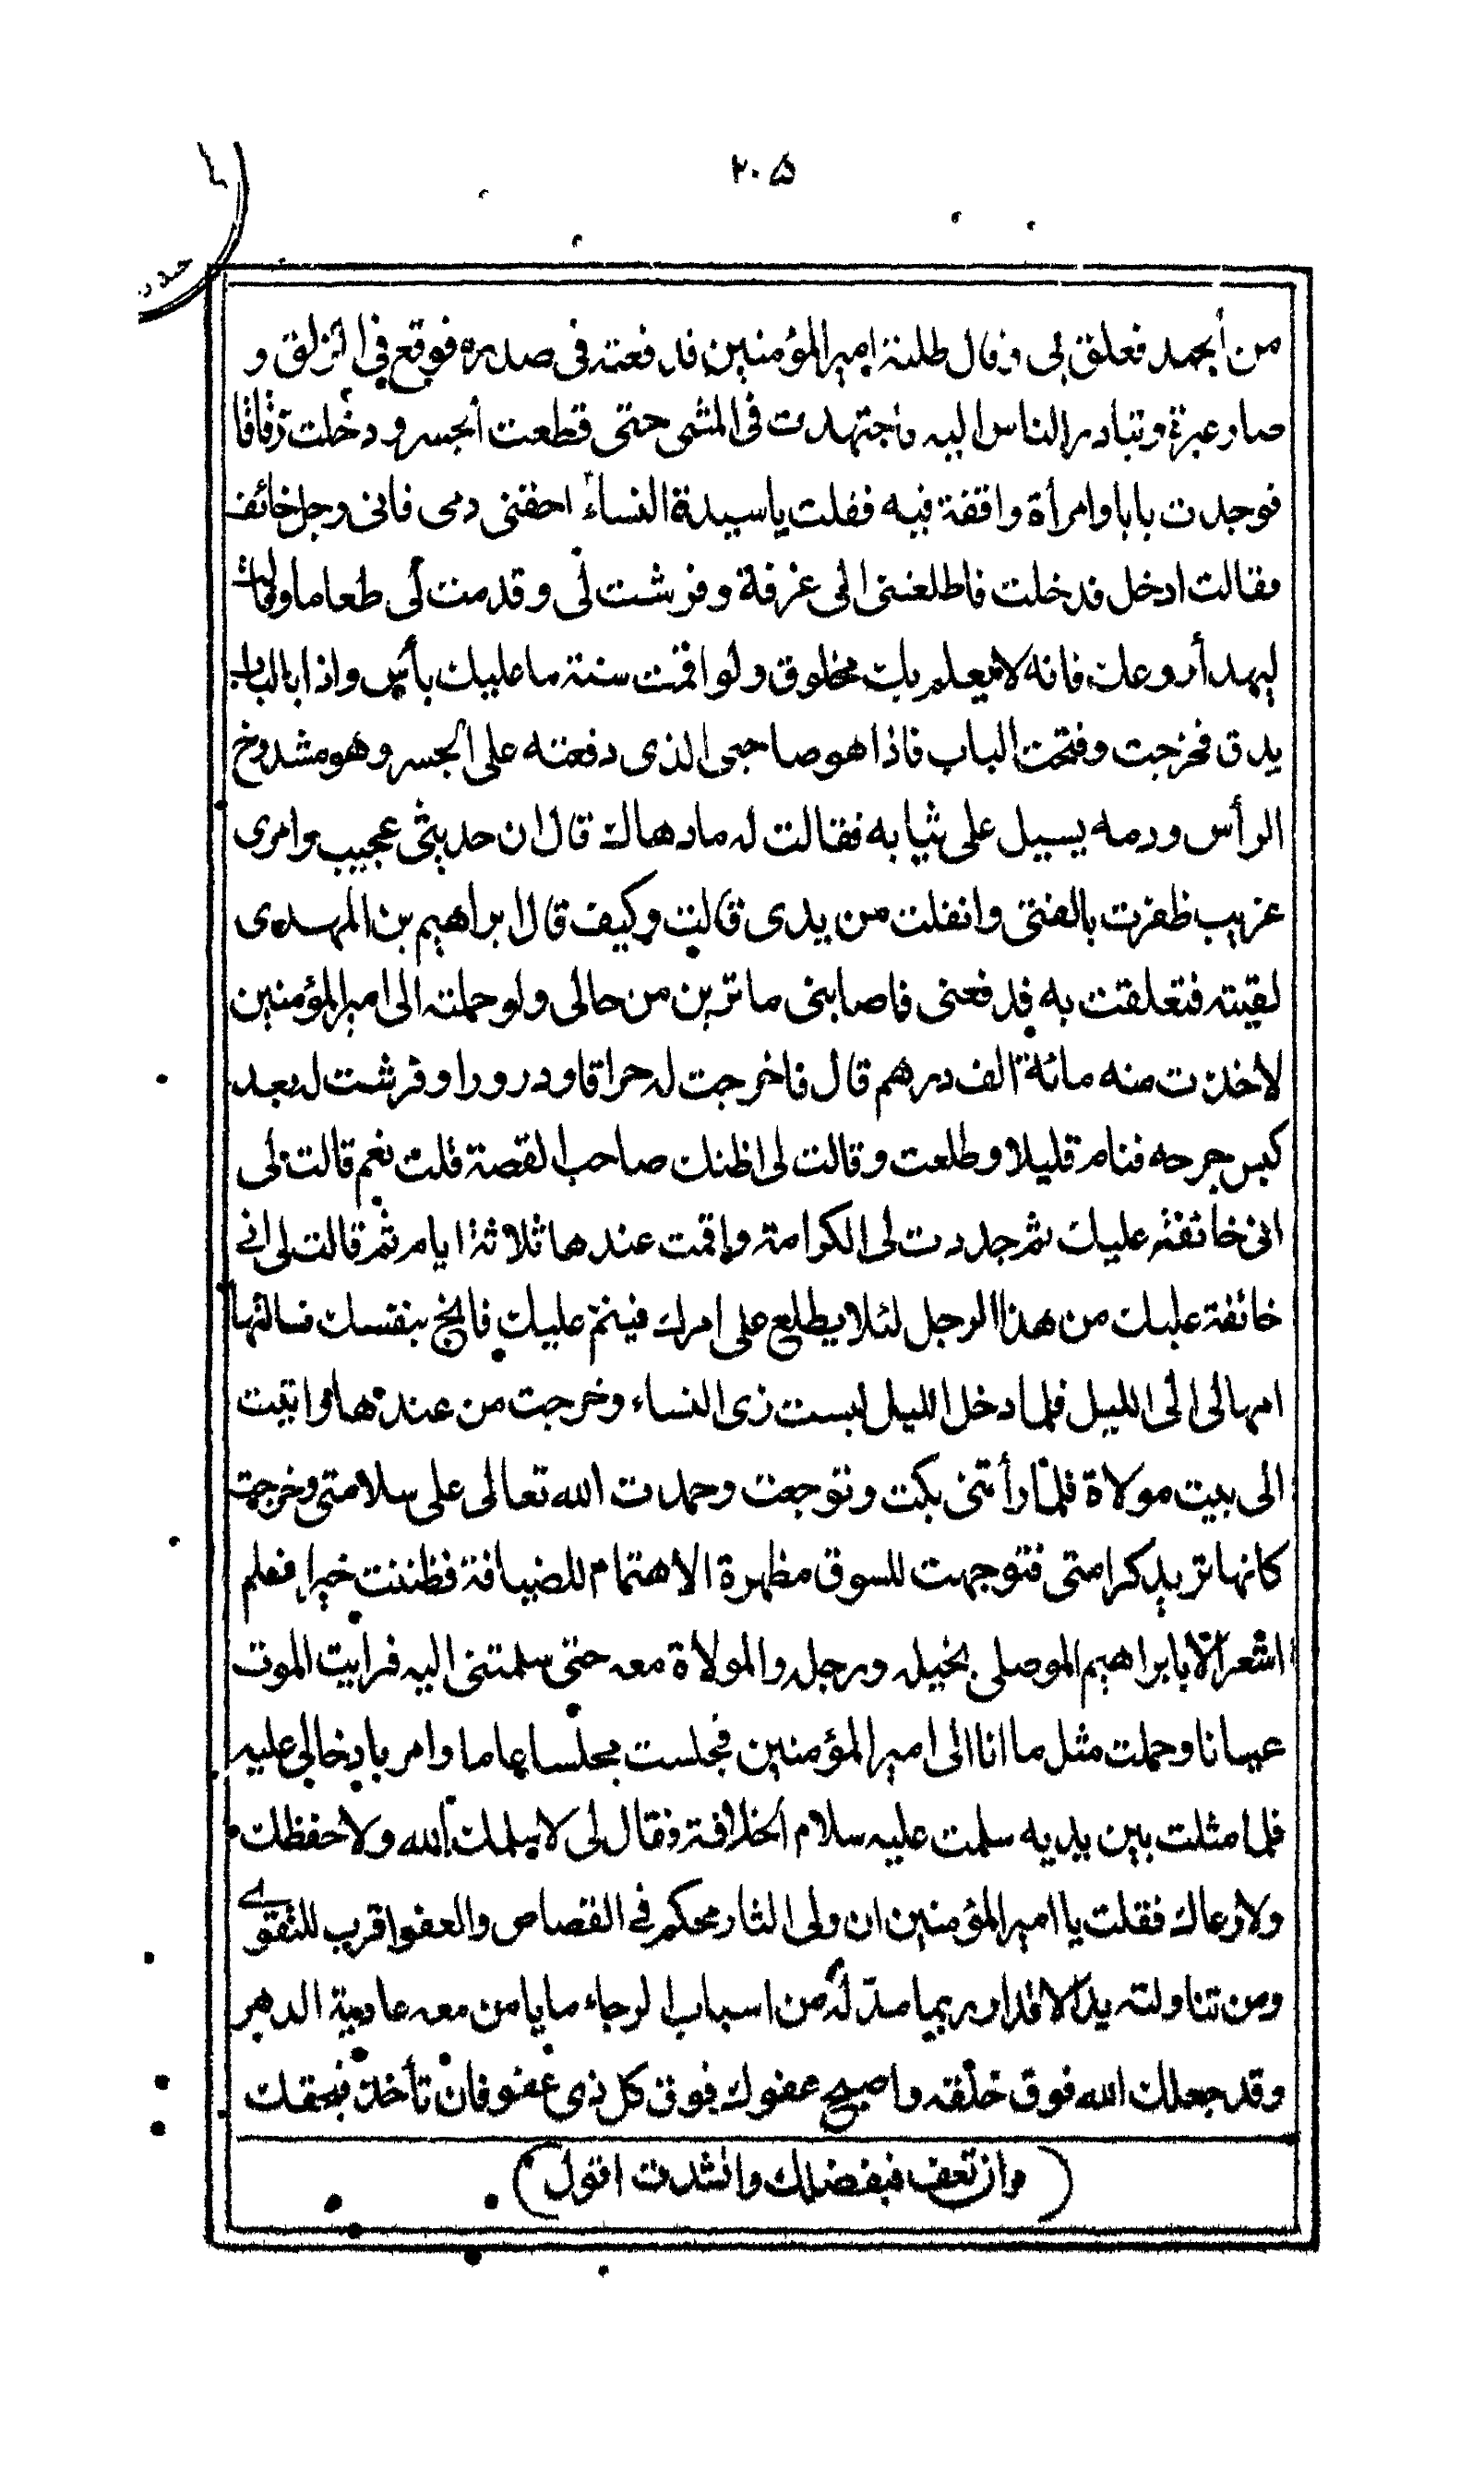 ٢٠٥
من الجند فعلق بي وقال طلبة امير المؤمنين فدفعته في صدره فوقع في الزلق و
صار عبرة وتبادر الناس اليه فاجتهدت في المشي حتى قطعت الجسر ودخلت زقاقا
فوجدت بابا وامرأة واقفة فيه فقلت ياسيدة النساء احقني دمي فاني رجل خائف
فقالت ادخل فدخلت فاطلعتني الى غرفة وفرشت لي وقدمت لي طعاما وقالت
ليهدأ روعك فانه لا يعلم بك مخلوق ولو اقمت سنة ما عليك بأس واذا بالباب
يدق فخرجت وفتحت الباب فاذا هو صاحبي الذي دفعته على الجسر وهو مشدوخ
الرأس ودمه يسيل على ثيابه فقالت له ما دهاك قال ان حديثي عجيب وامري
غريب ظفرت بالفتى وانفلت من يدي قالت وكيف قال ابراهيم بن المهدي
لقيته فتعلقت به فدفعني فاصابني ما ترين من حالي ولو حملته الى امير المؤمنين
لاخذت منه مائة الف درهم قال فاخرجت له حراقا ودرورا وفرشت له بعد
كبس جرحه فنام قليلا وطلعت وقالت لي اظنك صاحب القصة قلت نعم قالت لي
اني خائفة عليك ثم جددت لي الكرامة واقمت عندها ثلاثة ايام ثم قالت لي اني
خائفة عليك من هذا الرجل لئلا يطلع على امرك فينم عليك فانج بنفسك فسالتها
امهالي الى الليل فلما دخل الليل لبست زي النساء وخرجت من عندها واتيت
الى بيت مولاة فلما رأتني بكت وتوجعت وحمدت الله تعالى على سلامتي وخرجت
كانها تريد كرامتي فتوجهت للسوق مظهرة الاهتمام للضيافة فظننت خيرا فعلم
اشعر الا بابراهيم الموصلي بخيله ورجله والمولاة معه حتى سلمتني اليه فرايت الموت
عيانا وحملت مثل ما انا الى امير المؤمنين فجلست مجلسا عاما وامر بادخالي عليه
فلما مثلت بين يديه سلمت عليه سلام الخلافة فقال لي لا سلمك الله ولا حفظك
ولا رعاك فقلت يا امير المؤمنين ان ولي الثار محكم في القصاص والعفو اقرب للتقوى
ومن تناولته يد الاقدار بما مد له من اسباب الرجاء ما يامن معه عادية الدهر
وقد جعلك الله فوق خلقه واصبح عفوك فوق كل ذي عفو فان تأخذ فبحقك
(وان تعف فبفضلك وانشدت اقول)